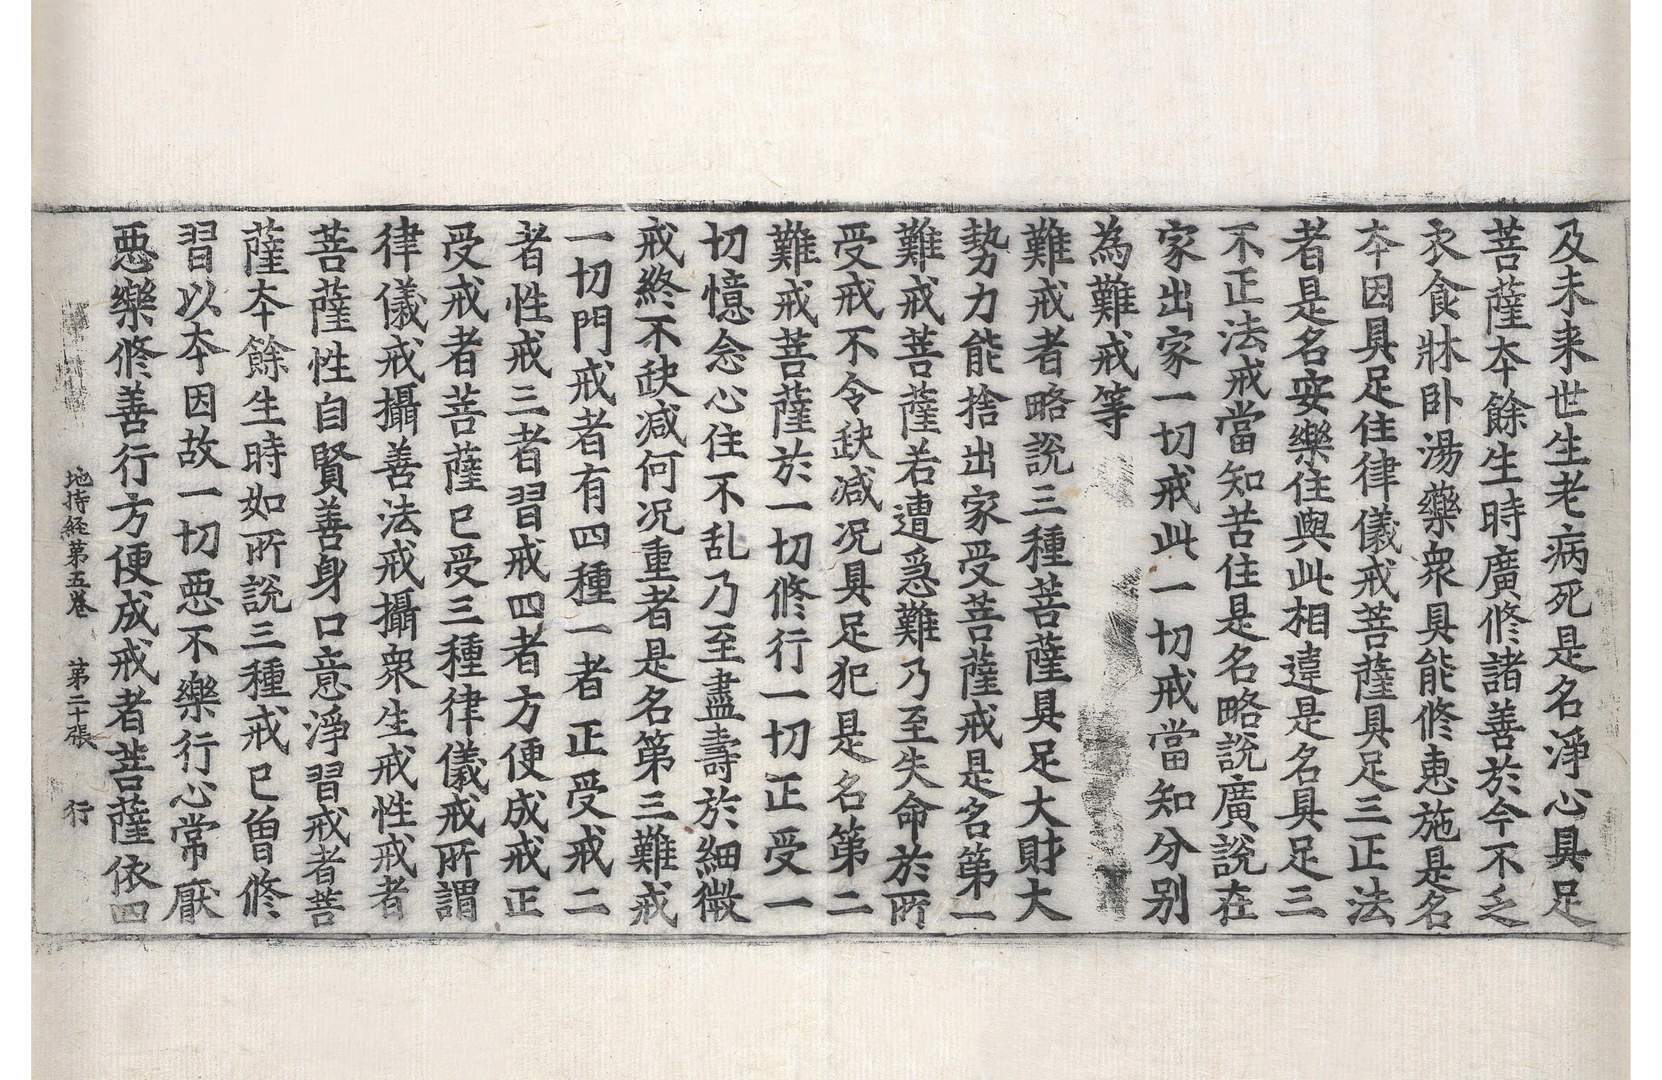 及未来世生老病死是名淨心具足
菩薩夲餘生時廣修諸善於今不乏
衣食牀卧湯藥衆具能修惠施是名
夲因具足住律儀戒菩薩具足三正法
者是名安樂住與此相違是名具足三
不正法戒當知苦住是名略說廣說在
家出家一切戒此一切戒當知分别
為難戒等
難戒者略說三種菩薩具足大財大
勢力力能捨出家受菩薩戒是名第一
難戒菩薩若遭急難乃至失命於所
受戒不令缺減况具足犯是名第二
難戒菩薩於一切修行一切正受一
切憶念心住不乱乃至盡壽於細微
戒終不缺減何况重者是名第三難戒
一切門戒者有四種一者正受戒二
者性戒三者習戒四者方便成戒正
受戒者菩薩已受三種律儀戒所謂
律儀戒攝善法戒攝衆生戒性戒者
菩薩性自賢善身口意淨習戒者菩
薩夲餘生時如所說三種戒已曽修
習以夲因故一切惡不樂行心常厭
惡樂修善行方便成戒者菩薩依四
地持経第五卷 第二十張 行